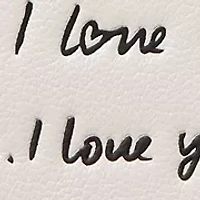 I love
. I love y